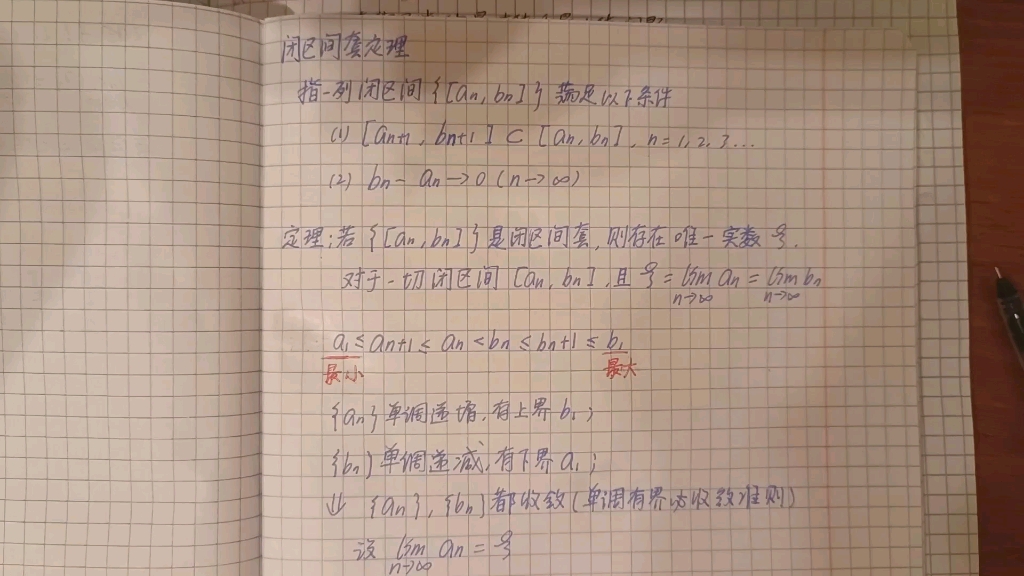 闭区间套定理
指一列闭区间{[an, bn]} 满足以下条件
(1) [an+1, bn+1] ⊂ [an, bn], n=1,2,3...
(2) bn - an → 0 (n→∞)
定理:若{[an, bn]}是闭区间套,则存在唯一实数ξ.
对于一切闭区间[an, bn],且ξ=lim an=lim bn
n→∞ n→∞
a1≤an+1≤an<bn≤bn+1≤b1
最小 最大
{an}单调递增,有上界b1;
{bn}单调递减,有下界a1;
⇓ {an},{bn}都收敛(单调有界必收敛准则)
设 lim an=ξ
n→∞